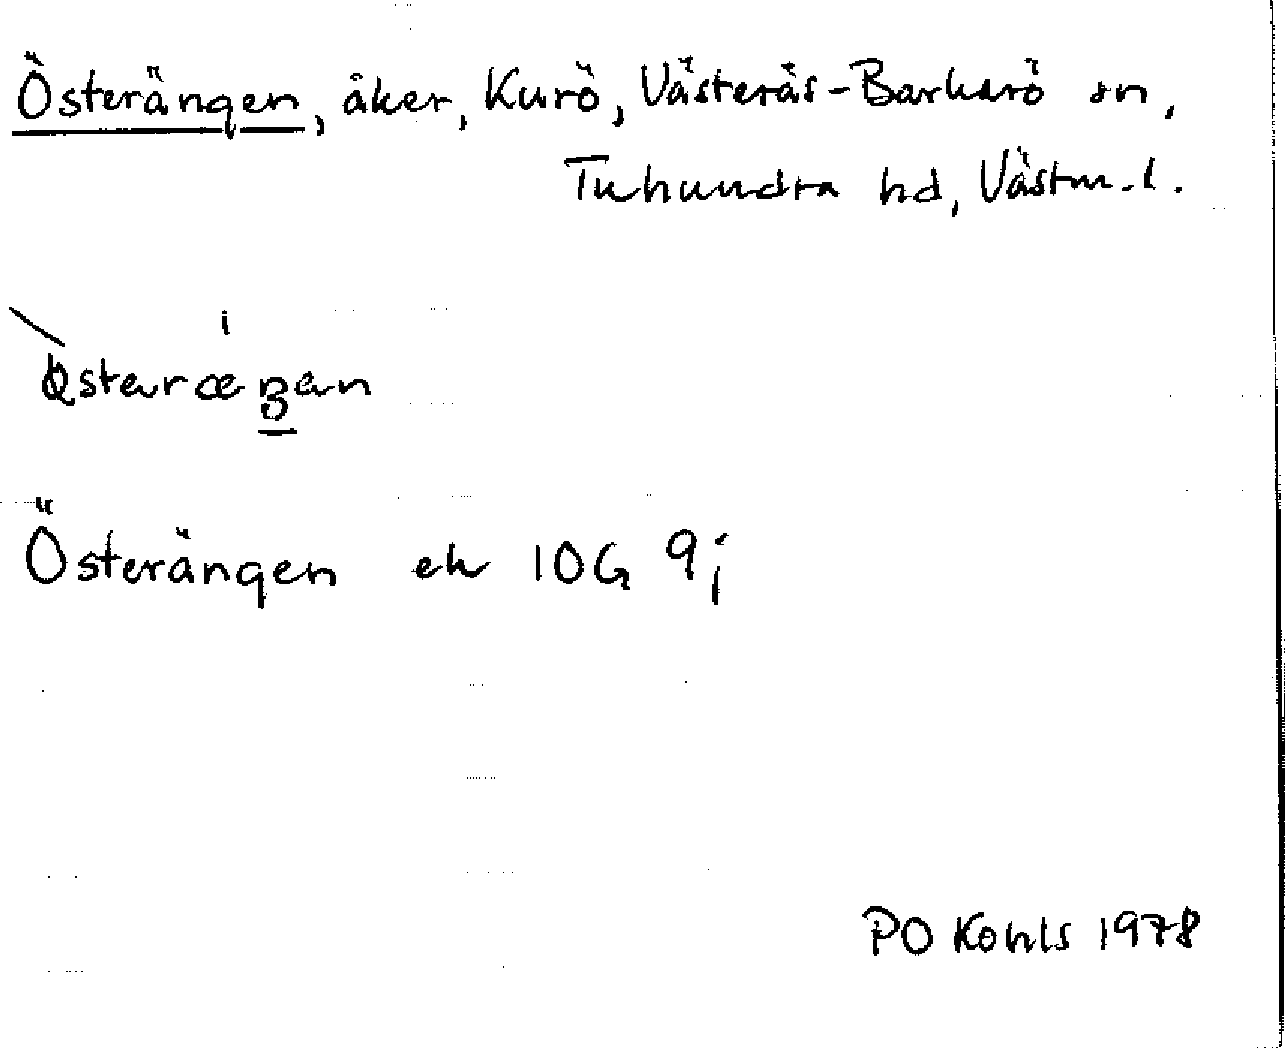 Österängen, åker, Kurö, Västerås-Barkarö sn,
Tuhundra hd, Västm.l.
Österängen ek 10G 9j
PO Kohls 1978